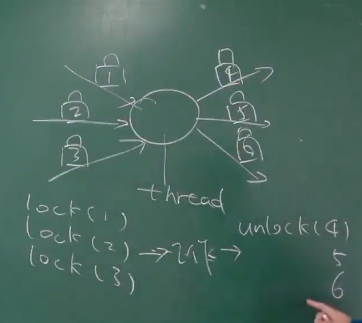 1
4
2
5
3
6
thread
lock(1)
lock(2)
lock(3)
unlock(4)
5
6